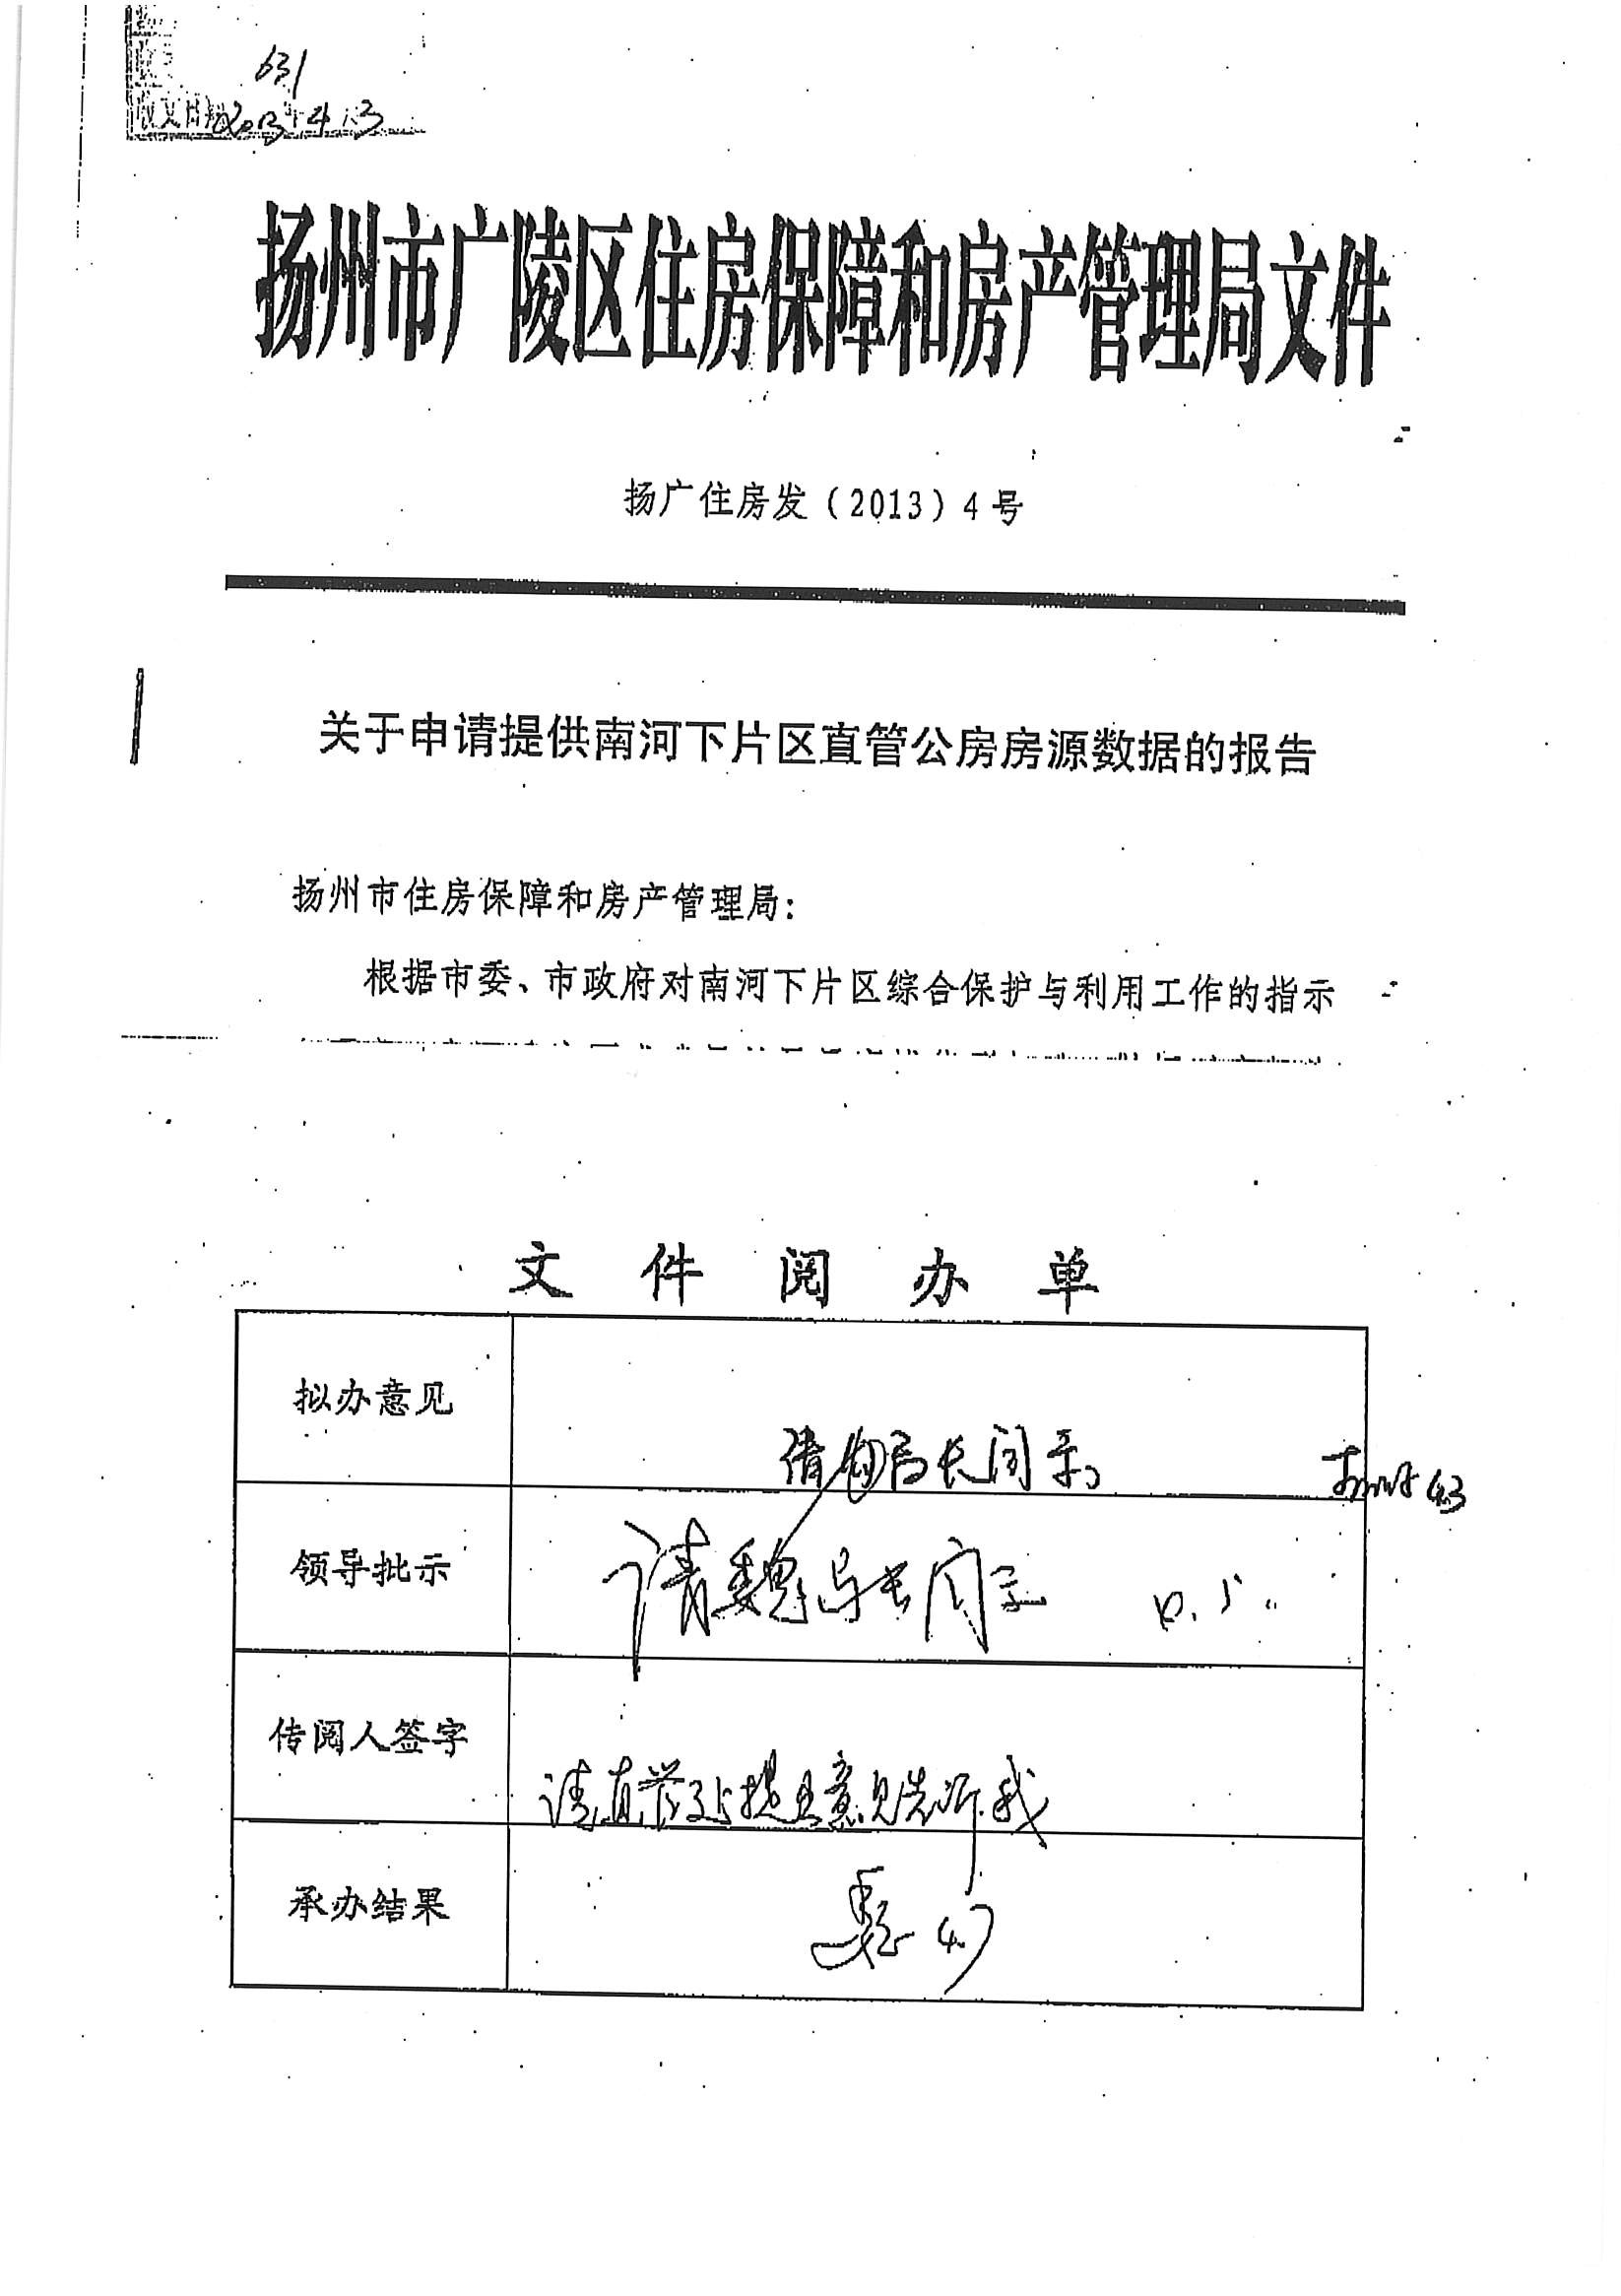 631
收文日期 2013年4.3
扬州市广陵区住房保障和房产管理局文件
扬广住房发(2013)4号
关于申请提供南河下片区直管公房房源数据的报告
扬州市住房保障和房产管理局:
根据市委、市政府对南河下片区综合保护与利用工作的指示
文件阅办单
拟办意见
请 局长阅示
4.3
领导批示
请魏局长阅示 4.5.
传阅人签字
请直管处提出意见告诉我
承办结果
魏 4.7